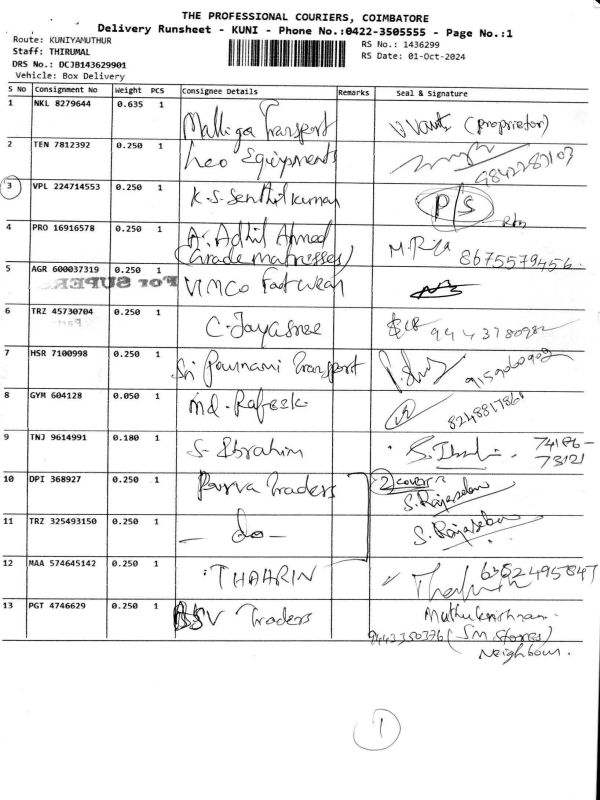 THE PROFESSIONAL COURIERS, COIMBATORE
Delivery Runsheet - KUNI - Phone No.:0422-3505555 - Page No.:1
Route: KUNIYAMUTHUR
RS No.: 1436299
Staff: THIRUMAL
RS Date: 01-Oct-2024
DRS No.: DCJB143629901
Vehicle: Box Delivery
S No Consignment No Weight PCS Consignee Details Remarks Seal & Signature
1 NKL 8279644 0.635 1 Malliga Transport (proprietor)
2 TEN 7812392 0.250 1 Leo Equipments 9842287103
3 VPL 224714553 0.250 1 K.S. Senthil kumar P/S
4 PRO 16916578 0.250 1 A. Adhil Ahmed 8675579456
(Grade matresses)
5 AGR 600037319 0.250 1 VIMCO Footwear
For SUPER
6 TRZ 45730704 0.250 1 C. Jayasree 9443780982
7 HSR 7100998 0.250 1 Sri Pournami Transport 9159060902
8 GYM 604128 0.050 1 Md. Rafeek 8248817861
9 TNJ 9614991 0.180 1 S. Ibrahim 74186-
73121
10 DPI 368927 0.250 1 Purva Traders 2 cover
S. Rajasekar
11 TRZ 325493150 0.250 1 - do - S. Rajasekar
12 MAA 574645142 0.250 1 THAARIN 6382495847
13 PGT 4746629 0.250 1 BSV Traders Muthukrishnan
9443350376 (SM Stores)
Neighbour.
1